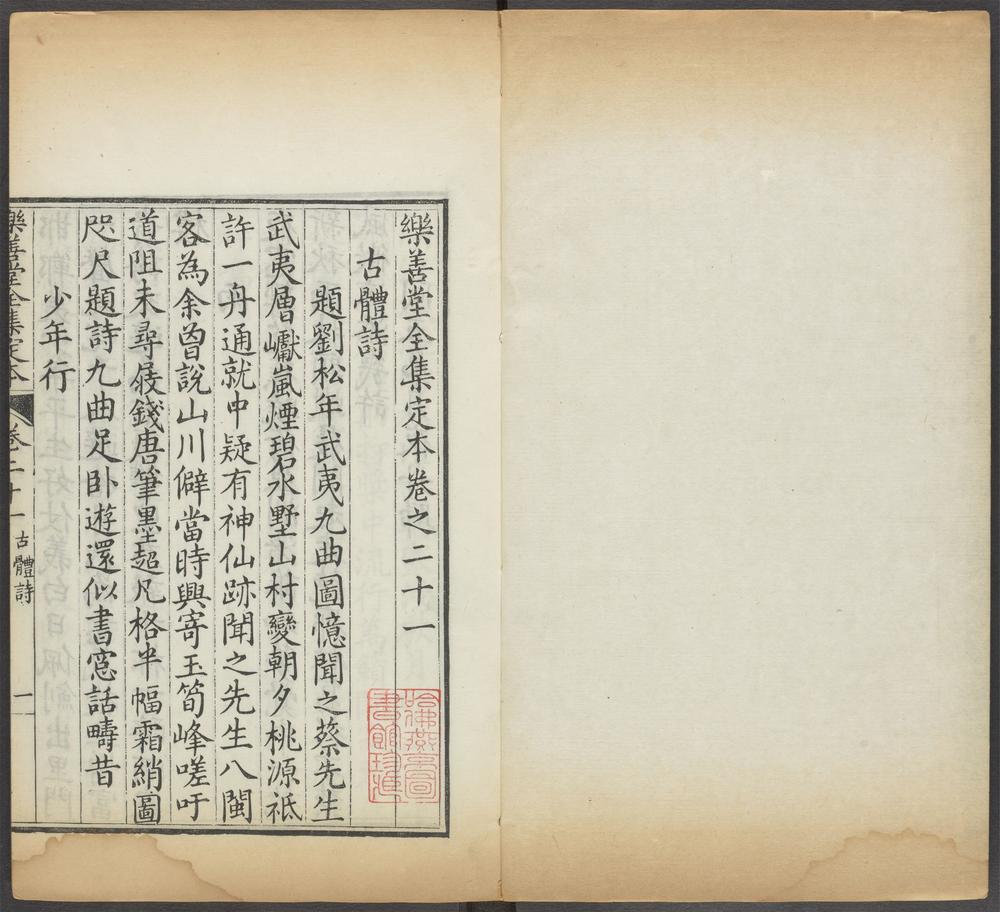 樂善堂全集定本卷之二十一
古體詩
題劉松年武夷九曲圖憶聞之蔡先生
武夷層巘嵐煙碧水墅山村變朝夕桃源祗
許一舟通就中疑有神仙跡聞之先生八閩
客為余曾說山川僻當時興寄玉筍峰嗟吁
道阻未尋屐錢唐筆墨超凡格半幅霜綃圖
咫尺題詩九曲足卧遊還似書窻話疇昔
少年行
樂善堂全集定本 卷二十一 古體詩 一
哈佛燕京圖
書館珍藏